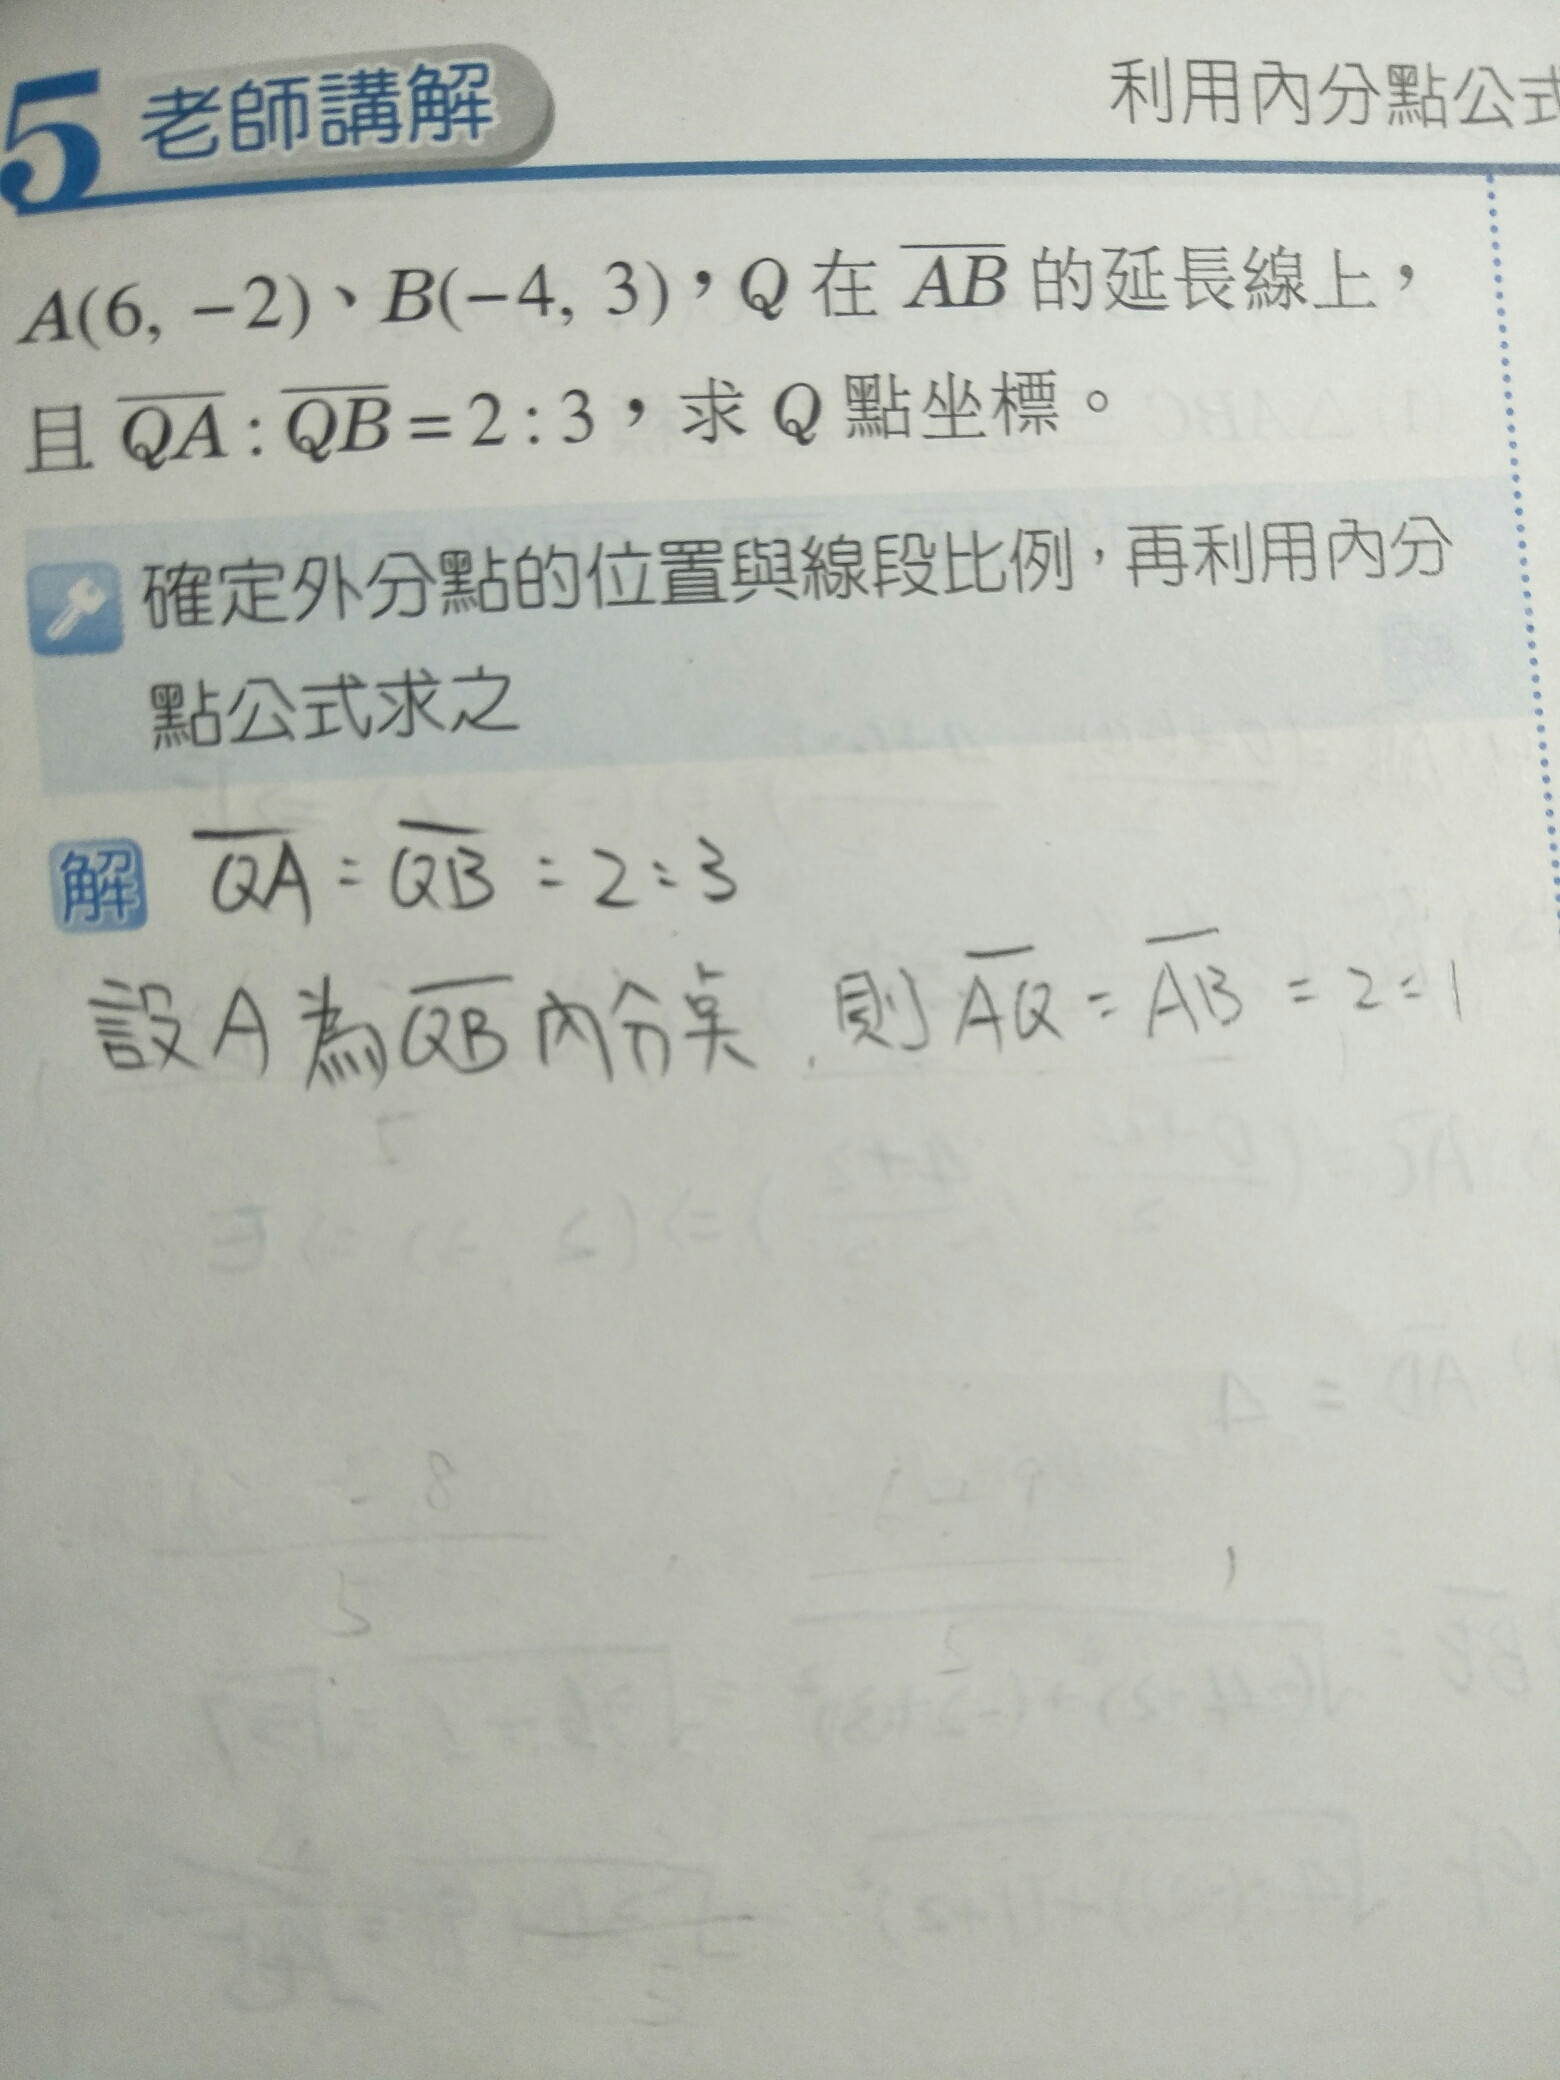 5 老師講解
利用內分點公式
A(6, −2)、B(−4, 3)，Q 在 AB 的延長線上，
且 QA : QB = 2 : 3，求 Q 點坐標。
確定外分點的位置與線段比例，再利用內分
點公式求之
解 QA : QB = 2 : 3
設 A 為 QB 內分點，則 AQ : AB = 2 : 1